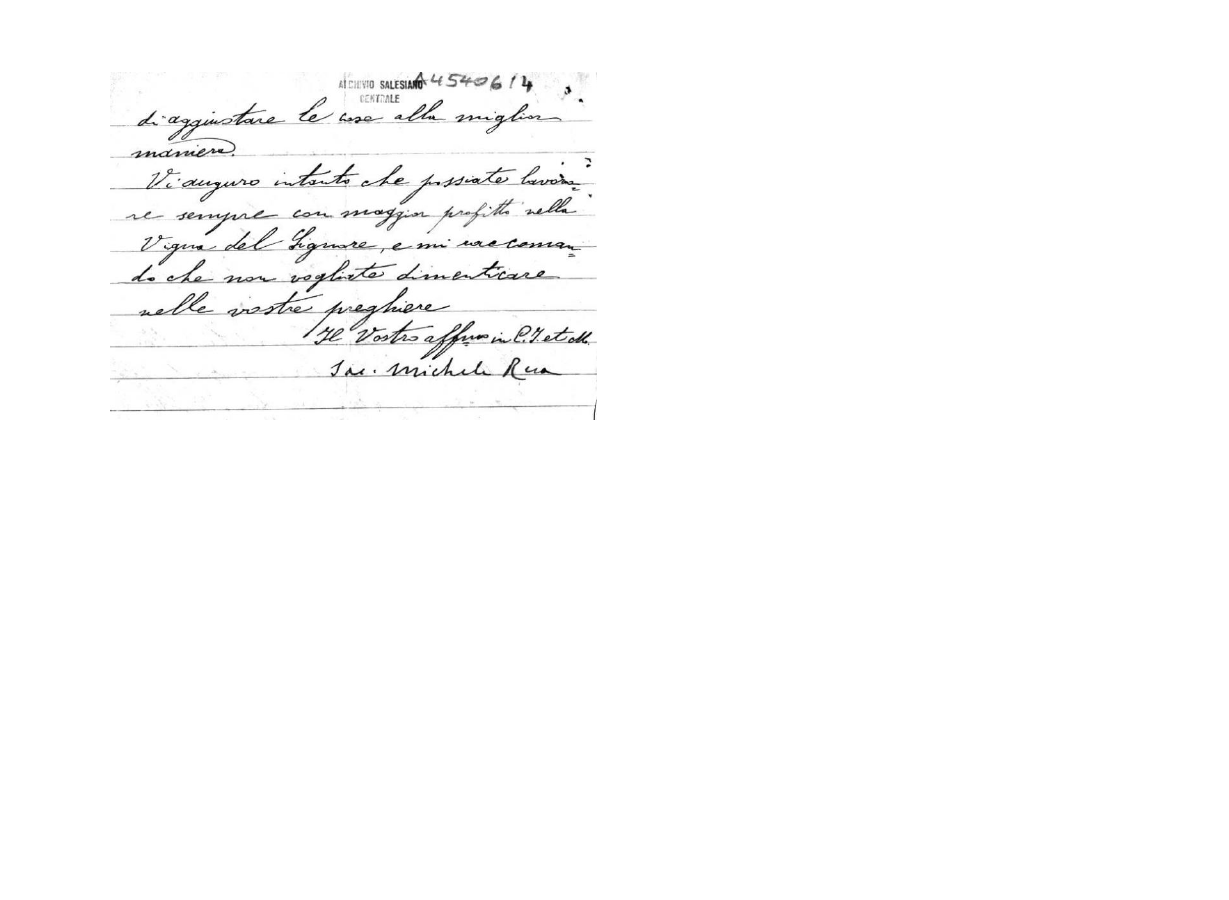 ARCHIVIO SALESIANO A4540614
CENTRALE
di aggiustare le cose alla miglior
maniera.
Vi auguro intanto che possiate lavora=
re sempre con maggior profitto nella
Vigna del Signore, e mi raccoman=
do che non vogliate dimenticare
nelle vostre preghiere
Il Vostro affmo in C. J. et M.
Sac. Michele Rua